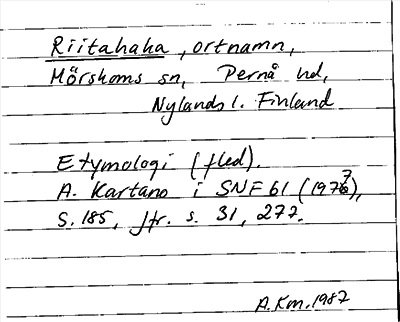 Riitahaka, ortnamn,
Mörskoms sn, Pernå hd,
Nylands l. Finland
Etymologi (fled).
A. Kartano i SNF 61 (1977),
S. 185, jfr. s. 31, 277.
A. Km. 1987